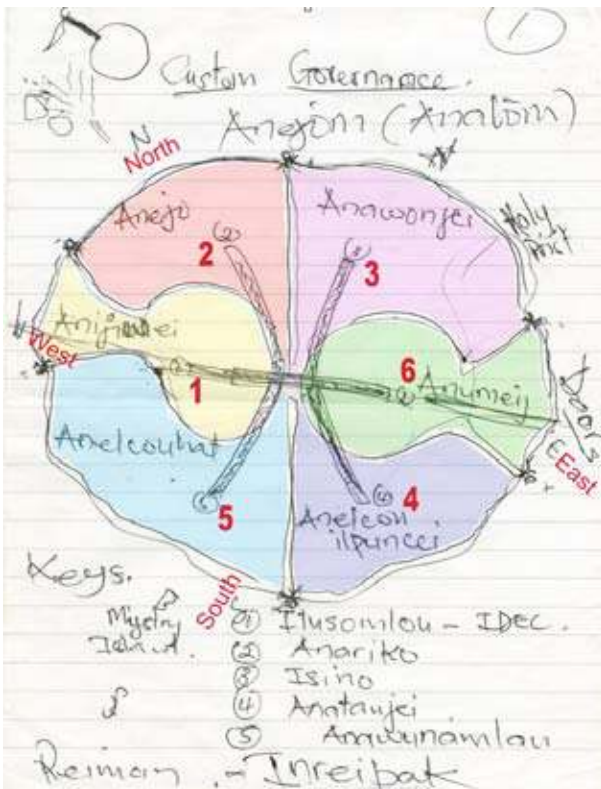 1
Custom Governance.
Anejom (Anatōm)
N
North
N
Anejo
Anawonjei
Holy
(2)
2
3
West
1
6
Anumeij
Doors
E
East
Anelcouhat
5
4
Anelcon
ilpuncei
Keys.
South
Mystry
Island.
① Itusomlou - IDEC.
② Anariko
③ Isino
④ Anataujei
⑤ Anawunamlau
Reiman . - Inreipak